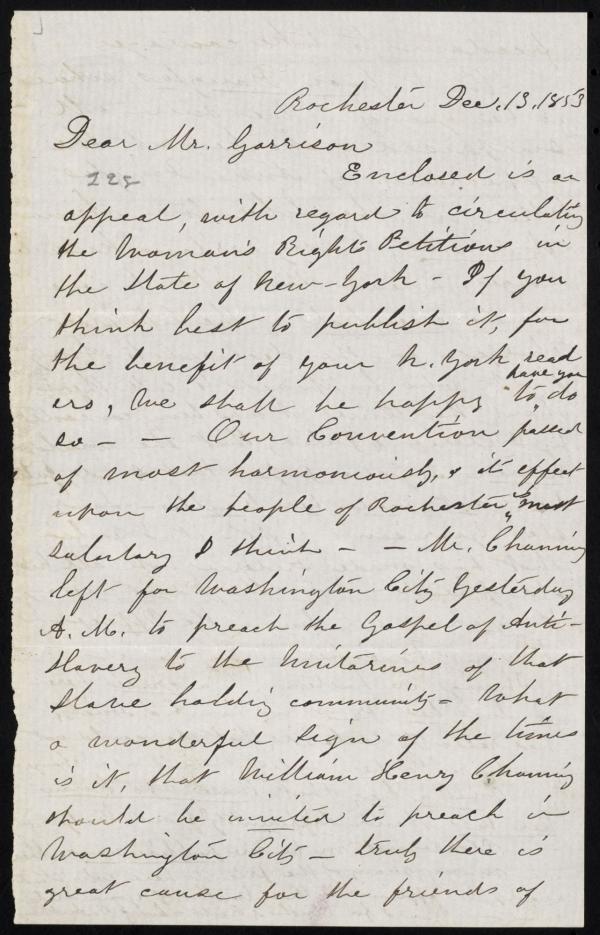 Rochester Dec. 13, 1853
Dear Mr. Garrison
225
Enclosed is an
appeal, with regard to circulating
the Woman's Rights Petitions in
the State of New-York - If you
think best to publish it, for
the benefit of your N. York read
ers, we shall be happy to have you do
so - - Our Convention passed
of most harmoniously, & it effect
upon the people of Rochester most
salutary I think - - Mr. Channing
left for Washington City Yesterday
A. M. to preach the Gospel of Anti-
Slavery to the Unitarians of that
Slave holding community - What
a wonderful sign of the times
is it, that William Henry Channing
should be invited to preach in
Washington City - truly there is
great cause for the friends of